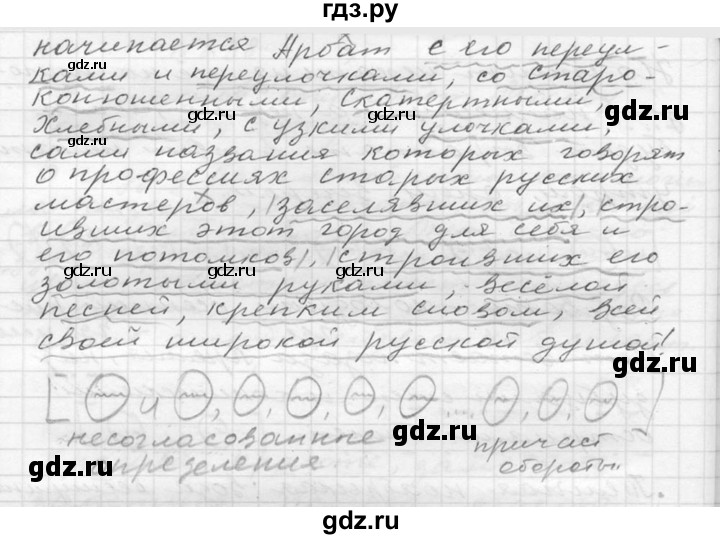 гдз.ру
начинается Арбат с его переул-
ками и переулочками, со Старо-
конюшенными, Скатертными,
Хлебными, с узкими улочками,
сами названия которых говорят
о профессиях старых русских
мастеров, |заселявших их|, |стро-
ивших этот город для себя и
его потомков|, |строивших его
золотыми руками, весёлой
песней, крепким словом, всей
своей широкой русской душой|
[О и О, О, О, О, О ... О, О, О]
несогласованные причаст
определения обороты
gdz.ru
gdz.ru
gdz.ru
gdz.ru
gdz.ru
gdz.ru
gdz.ru
gdz.ru
gdz.ru
gdz.ru
gdz.ru
gdz.ru
gdz.ru